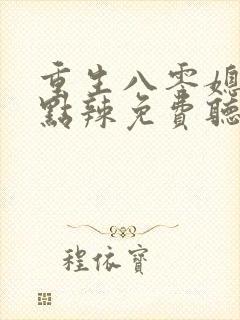 重生八零媳
點辣免費聽
程依寶